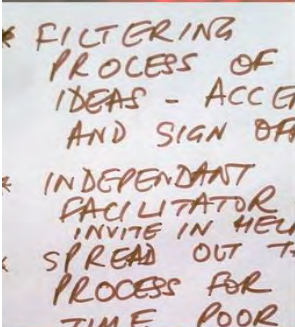 * FILTERING
PROCESS OF
IDEAS - ACCE
AND SIGN OFF
* INDEPENDANT
FACILITATOR
INVITE IN HEL
* SPREAD OUT T
PROCESS FOR
TIME POOR